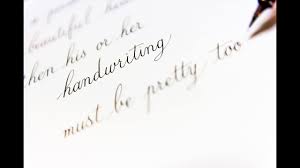 beautiful
then his or her
handwriting
must be pretty too